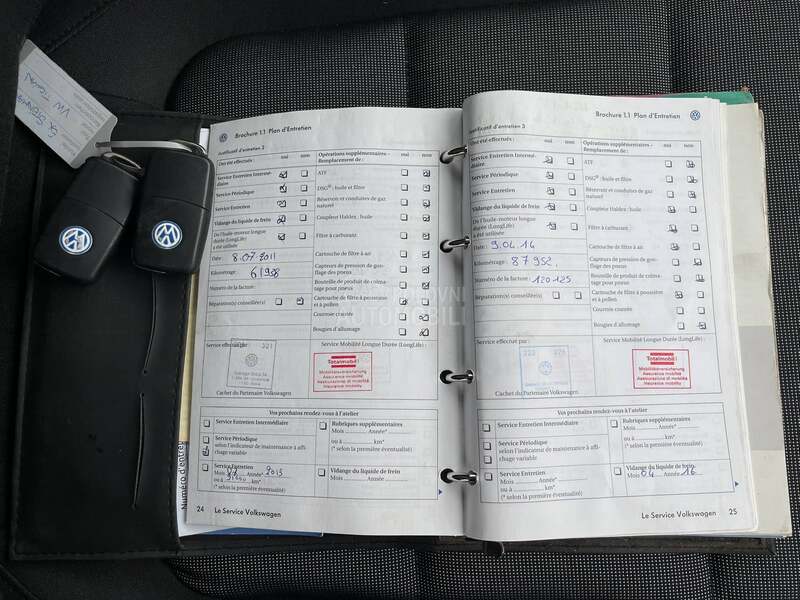 VW Touran
Brochure 1.1 Plan d'Entretien
Justificatif d'entretien 2
Ont été effectués : oui non
Service Entretien Intermé-
diaire
Service Périodique
Service Entretien
Vidange du liquide de frein
De l'huile-moteur longue
durée (LongLife)
a été utilisée
Date : 8.07.2011
Kilométrage :
Numéro de la facture :
Réparation(s) conseillée(s)
Opérations supplémentaires - oui non
Remplacement de :
ATF
DSG® : huile et filtre
Réservoir et conduites de gaz
naturel
Coupleur Haldex : huile
Filtre à carburant
Cartouche de filtre à air
Capteurs de pression de gon-
flage des pneus
Bouteille de produit de colma-
tage pour pneu
Cartouche de filtre à poussière
et à pollen
Courroie crantée
Bougies d'allumage
Service effectué par :
321
Service Mobilité Longue Durée (LongLife) :
Totalmobil!
Mobilitätsversicherung
Assurance mobilité
Assicurazione di mobilità
Insurance mobility
Cachet du Partenaire Volkswagen
Vos prochains rendez-vous à l'atelier
Service Entretien Intermédiaire
Service Périodique
selon l'indicateur de maintenance à affi-
chage variable
Service Entretien
Mois Année* 2013
ou à km*
(* selon la première éventualité)
Rubriques supplémentaires
Mois ........... Année* ...........
ou à ........... km*
(* selon la première éventualité)
Vidange du liquide de frein
Mois ........... Année ...........
24 Le Service Volkswagen
Numéro d'entre
Brochure 1.1 Plan d'Entretien
Justificatif d'entretien 3
Ont été effectués : oui non
Service Entretien Intermé-
diaire
Service Périodique
Service Entretien
Vidange du liquide de frein
De l'huile-moteur longue
durée (LongLife)
a été utilisée
Date : 9.04.14
Kilométrage : 87952
Numéro de la facture : 120125
Réparation(s) conseillée(s)
Opérations supplémentaires - oui non
Remplacement de :
ATF
DSG® : huile et filtre
Réservoir et conduites de gaz
naturel
Coupleur Haldex : huile
Filtre à carburant
Cartouche de filtre à air
Capteurs de pression de gon-
flage des pneus
Bouteille de produit de colma-
tage pour pneu
Cartouche de filtre à poussière
et à pollen
Courroie crantée
Bougies d'allumage
Service effectué par :
Service Mobilité Longue Durée (LongLife) :
Totalmobil!
Mobilitätsversicherung
Assurance mobilité
Assicurazione di mobilità
Insurance mobility
Cachet du Partenaire Volkswagen
Vos prochains rendez-vous à l'atelier
Service Entretien Intermédiaire
Service Périodique
selon l'indicateur de maintenance à affi-
chage variable
Service Entretien
Mois ........... Année* ...........
ou à ........... km*
(* selon la première éventualité)
Rubriques supplémentaires
Mois ........... Année* ...........
ou à ........... km*
(* selon la première éventualité)
Vidange du liquide de frein
Mois 04 Année 16
Le Service Volkswagen 25